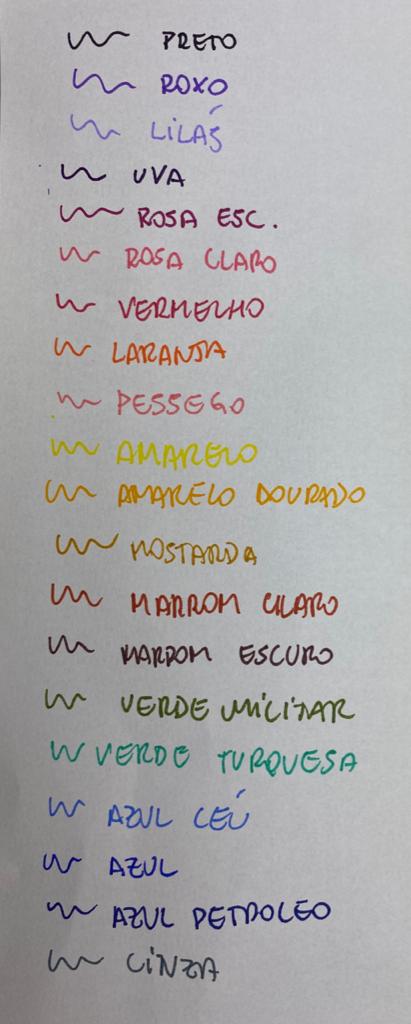 PRETO
ROXO
LILÁS
UVA
ROSA ESC.
ROSA CLARO
VERMELHO
LARANJA
PESSEGO
AMARELO
AMARELO DOURADO
MOSTARDA
MARROM CLARO
MARROM ESCURO
VERDE MILITAR
VERDE TURQUESA
AZUL CÉU
AZUL
AZUL PETROLEO
CINZA